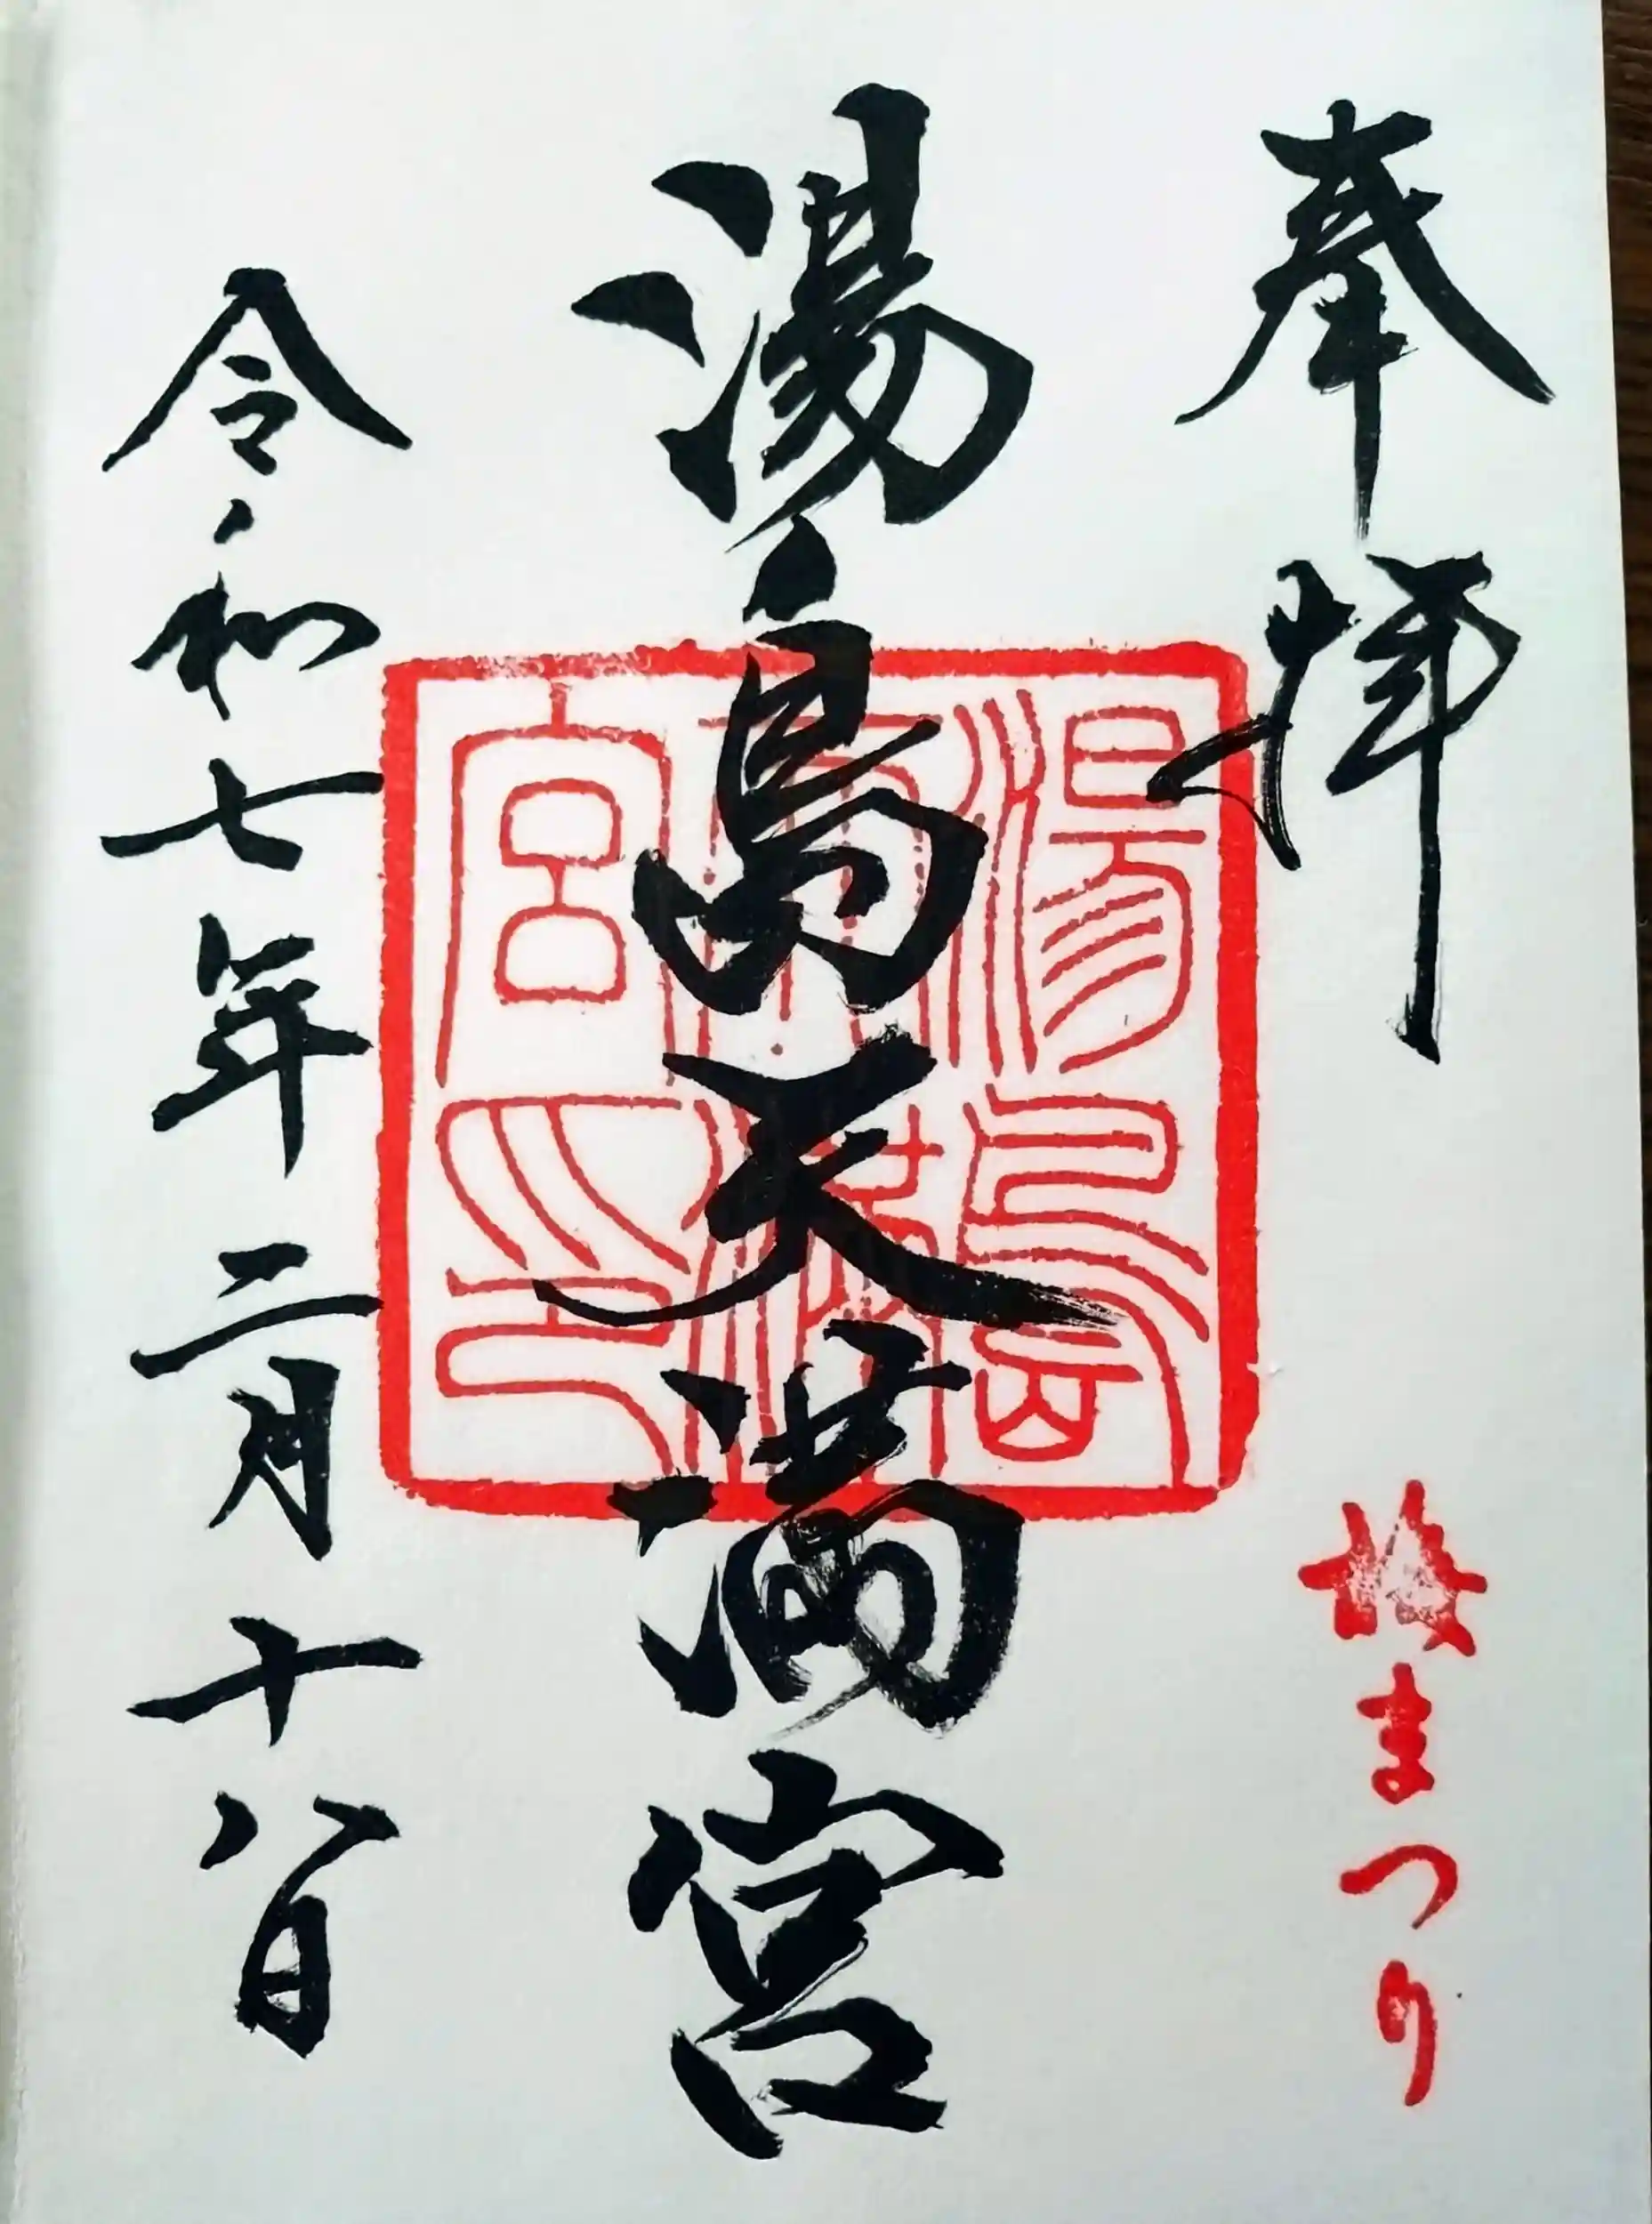 奉拝
梅まつり
湯島天満宮
湯島天満宮印
令和七年二月十八日